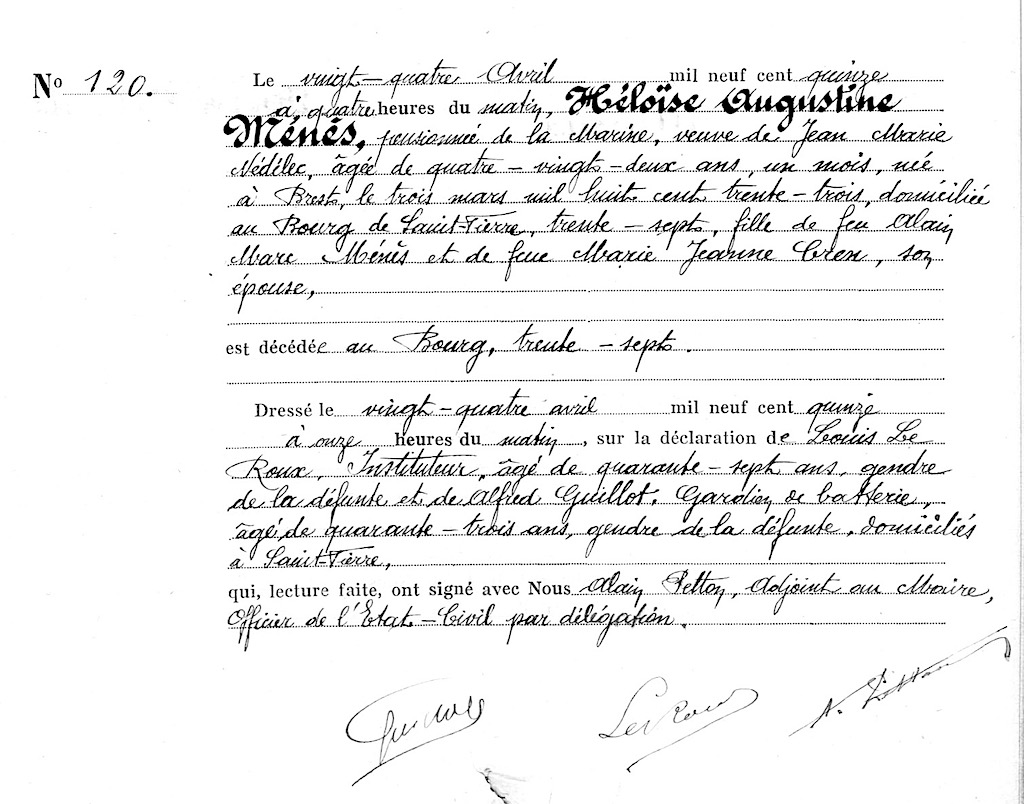 No 120.
Le vingt-quatre Avril mil neuf cent quinze
à quatre heures du matin, Héloïse Augustine
Ménès, pensionnée de la Marine, veuve de Jean Marie
Nédélec, âgée de quatre-vingt-deux ans, un mois, née
à Brest, le trois mars mil huit cent trente-trois, domiciliée
au Bourg de Saint-Pierre, trente-sept, fille de feu Alain
Marc Ménès et de feue Marie Jeanne Cren, son
épouse,
est décédée au Bourg, trente-sept.
Dressé le vingt-quatre avril mil neuf cent quinze
à onze heures du matin, sur la déclaration de Louis Le
Roux, Instituteur, âgé de quarante-sept ans, gendre
de la défunte et de Alfred Guillot, Gardien de batterie,
âgé de quarante-trois ans, gendre de la défunte, domiciliés
à Saint-Pierre,
qui, lecture faite, ont signé avec Nous Alain Petton, Adjoint au Maire,
Officier de l'Etat-Civil par délégation.
LeRoux A. Petton